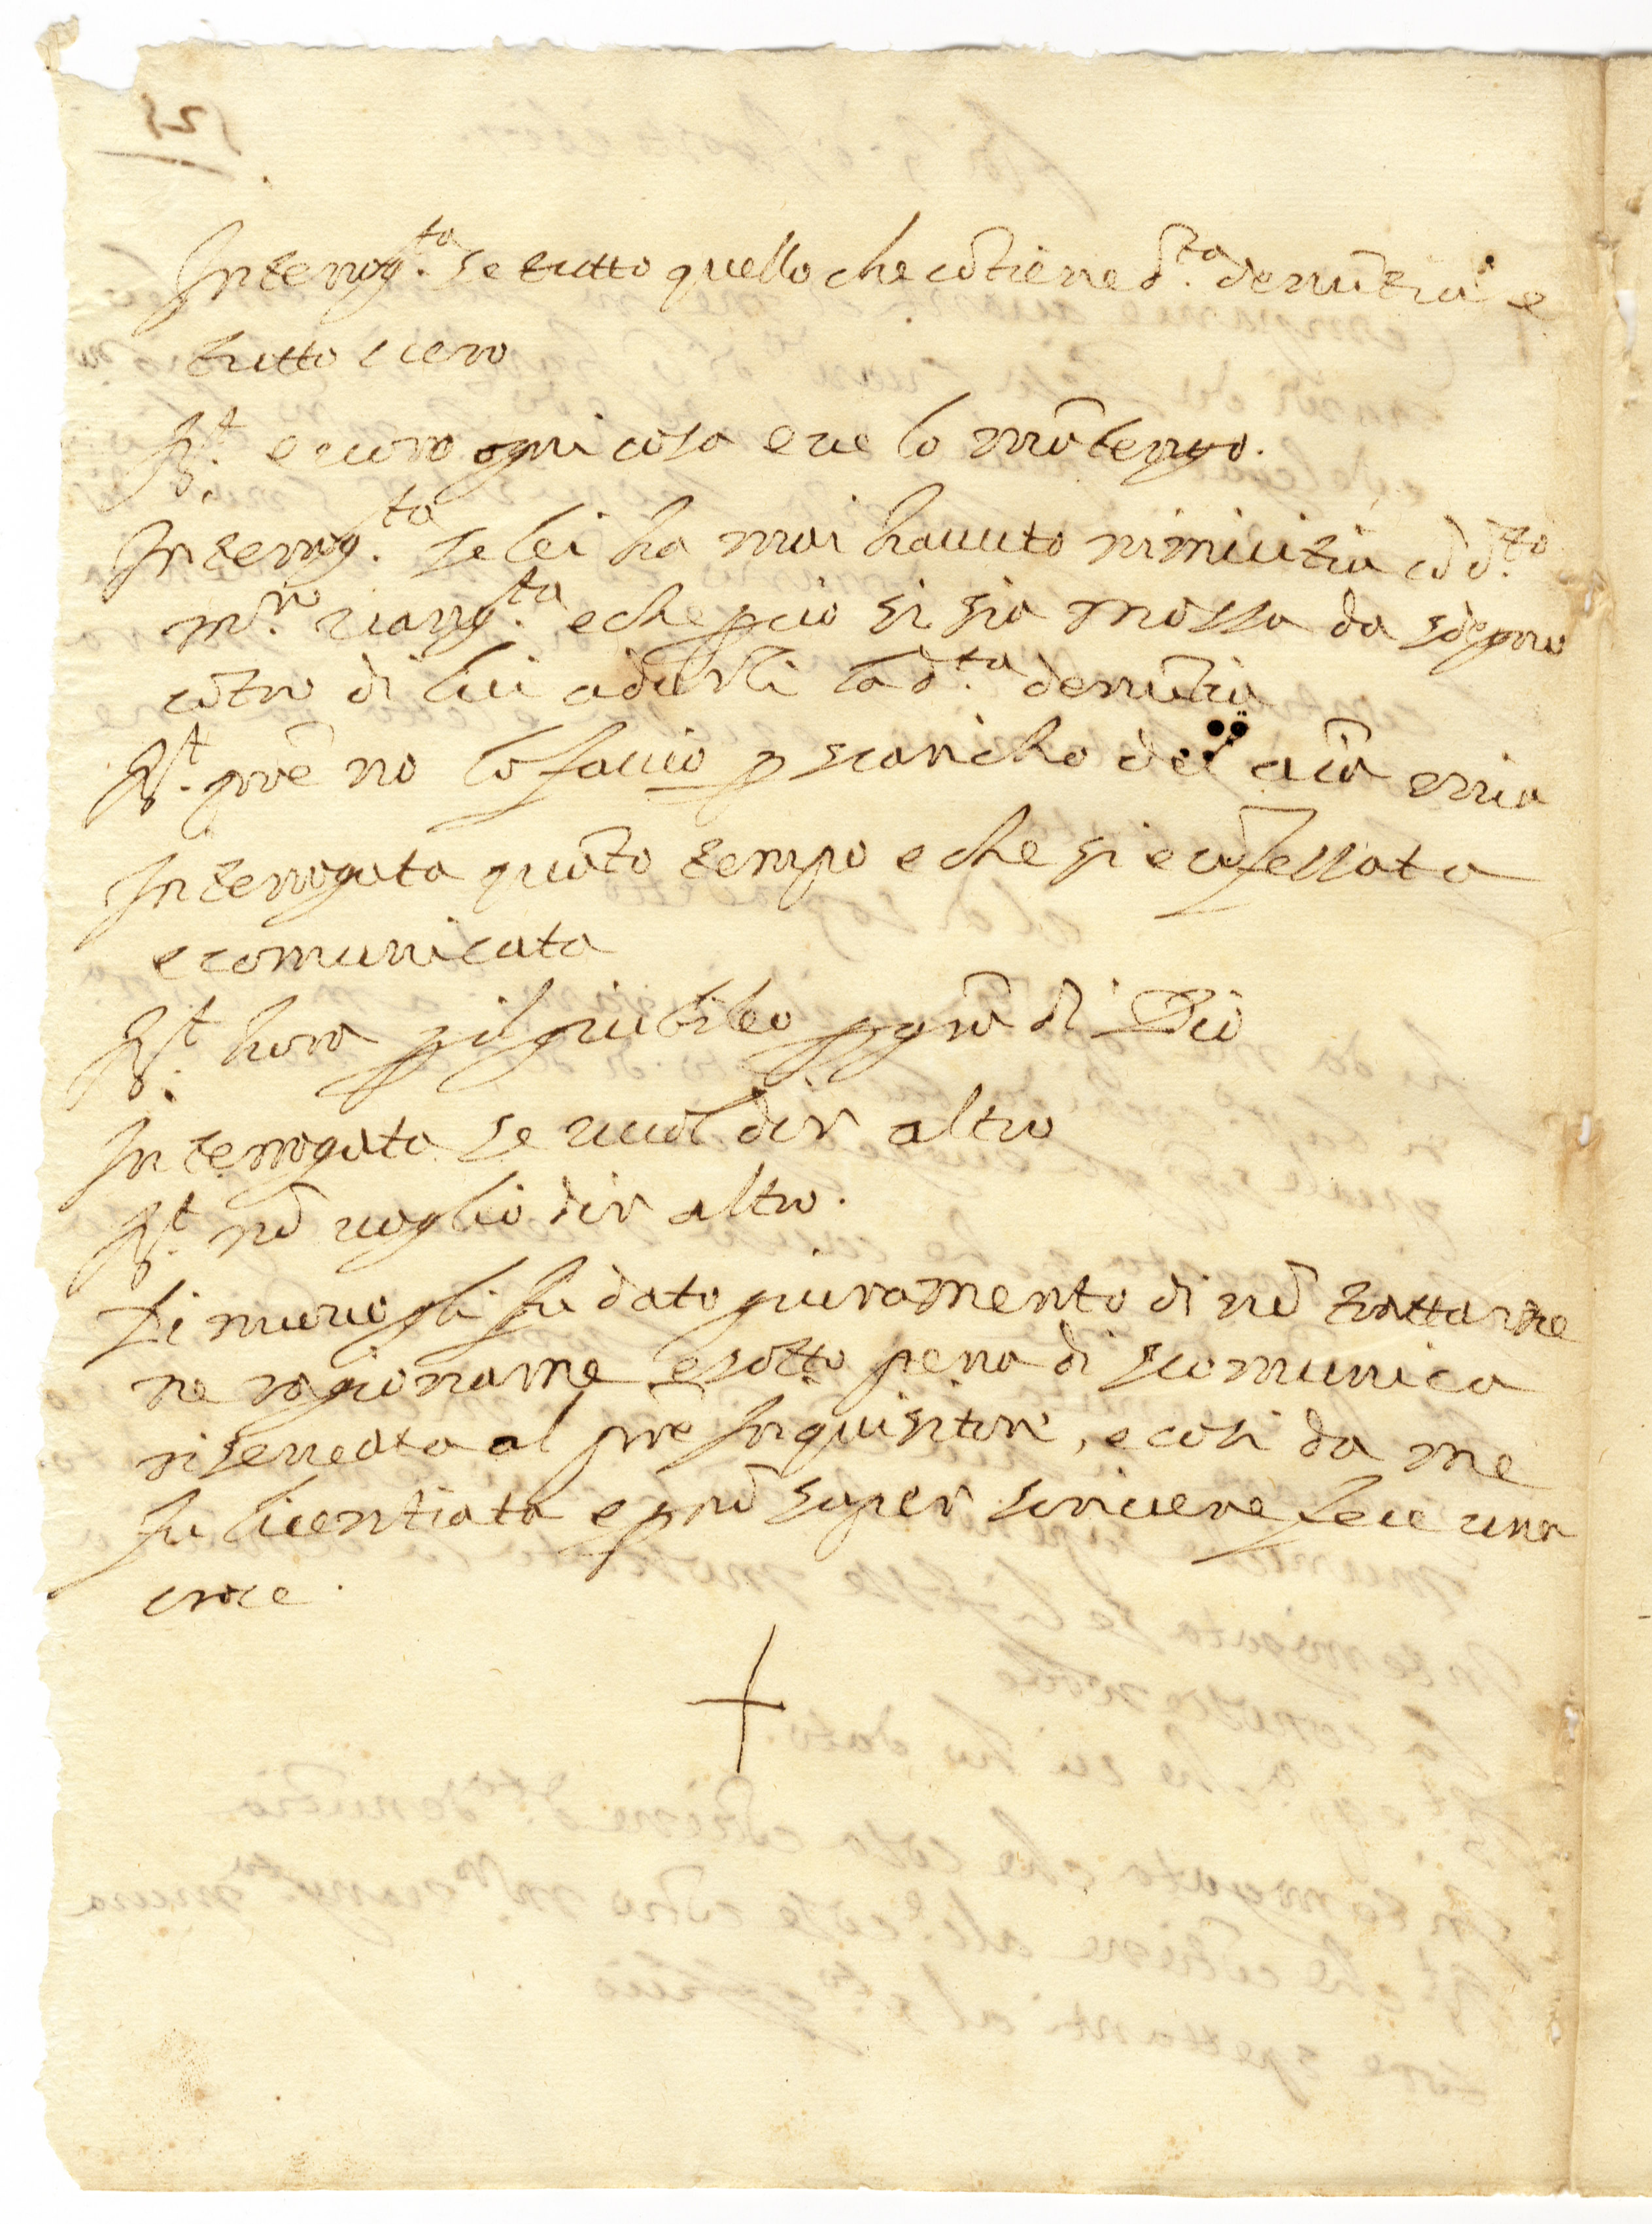 Interrog.ta se tutto quello che cōtiene d.ta denūtia e
tutto vero
R.t e vero ogni cosa e ve lo mātengo.
Interrog.ta se lei ha mai hauuto nimicitia cō d.to
m.ro viang.ta e che p ciò si sia mossa da sdegno
cōtro di lui a darli la d.ta denūtia
R.t prē no lo faccio p scaricho del aīa mia
Interrogata quāto tempo e che si e cōfessata
e comunicata
R.t hora p il giubileo p grā di Dio
Interrogata se vuol dir altro
R.t nō voglio dir altro.
Di nuovo gli fu dato giuramento di nō trattarne
ne ragionarne e sotto pena di scomunica
riservata al prē Inquisitore, e cosi da me
fu licentiata e p nō saper scrivere fece una
croce.
+